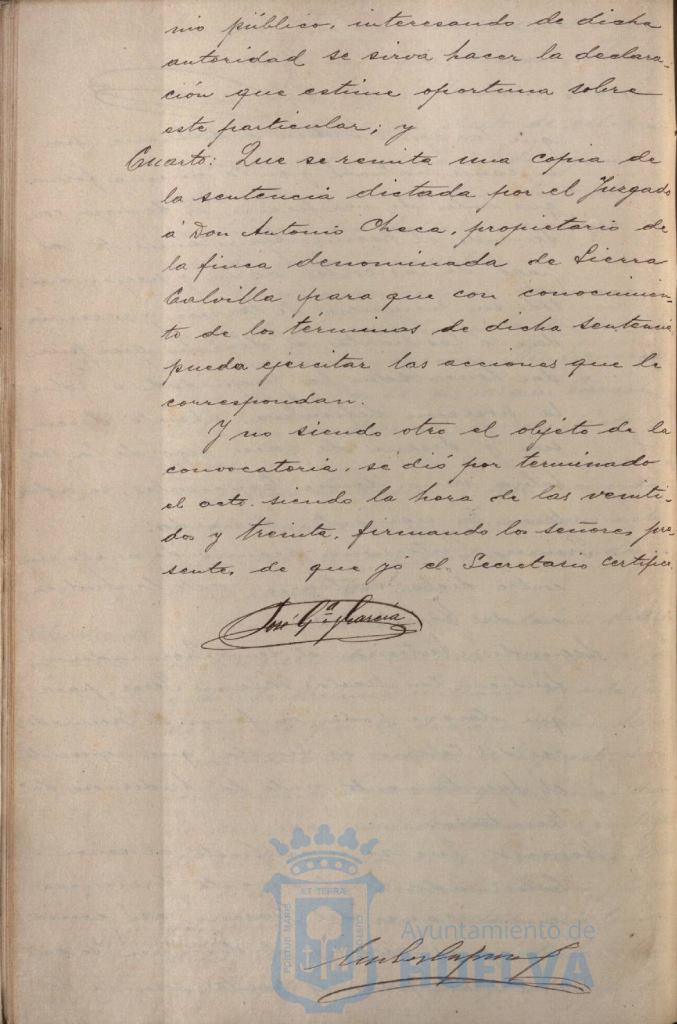 nio público, interesando de dicha
autoridad se sirva hacer la declara-
ción que estime oportuna sobre
este particular; y
Cuarto: Que se remita una copia de
la sentencia dictada por el Juzgado
á Don Antonio Checa, propietario de
la finca denominada de Sierra
Calvilla para que con conocimien-
to de los términos de dicha sentencia
pueda ejercitar las acciones que le
correspondan.
Y no siendo otro el objeto de la
convocatoria, se dió por terminado
el acto, siendo la hora de las veinti-
dos y treinta, firmando los señores pre-
sentes de que yó el Secretario certifico.
José Gª García
PORTUS MARIS ET TERRAE CUSTODIA
Ayuntamiento de
HUELVA